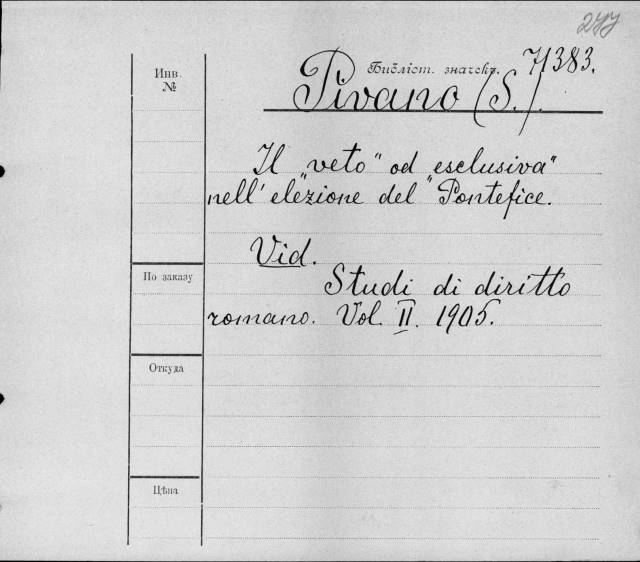 277
Инв. №
Библіот. значекъ. 71383.
Pivano (S.).
Il "veto" od "esclusiva"
nell' elezione del Pontefice.
Vid.
Studi di diritto
romano. Vol. II. 1905.
По заказу
Откуда
Цѣна